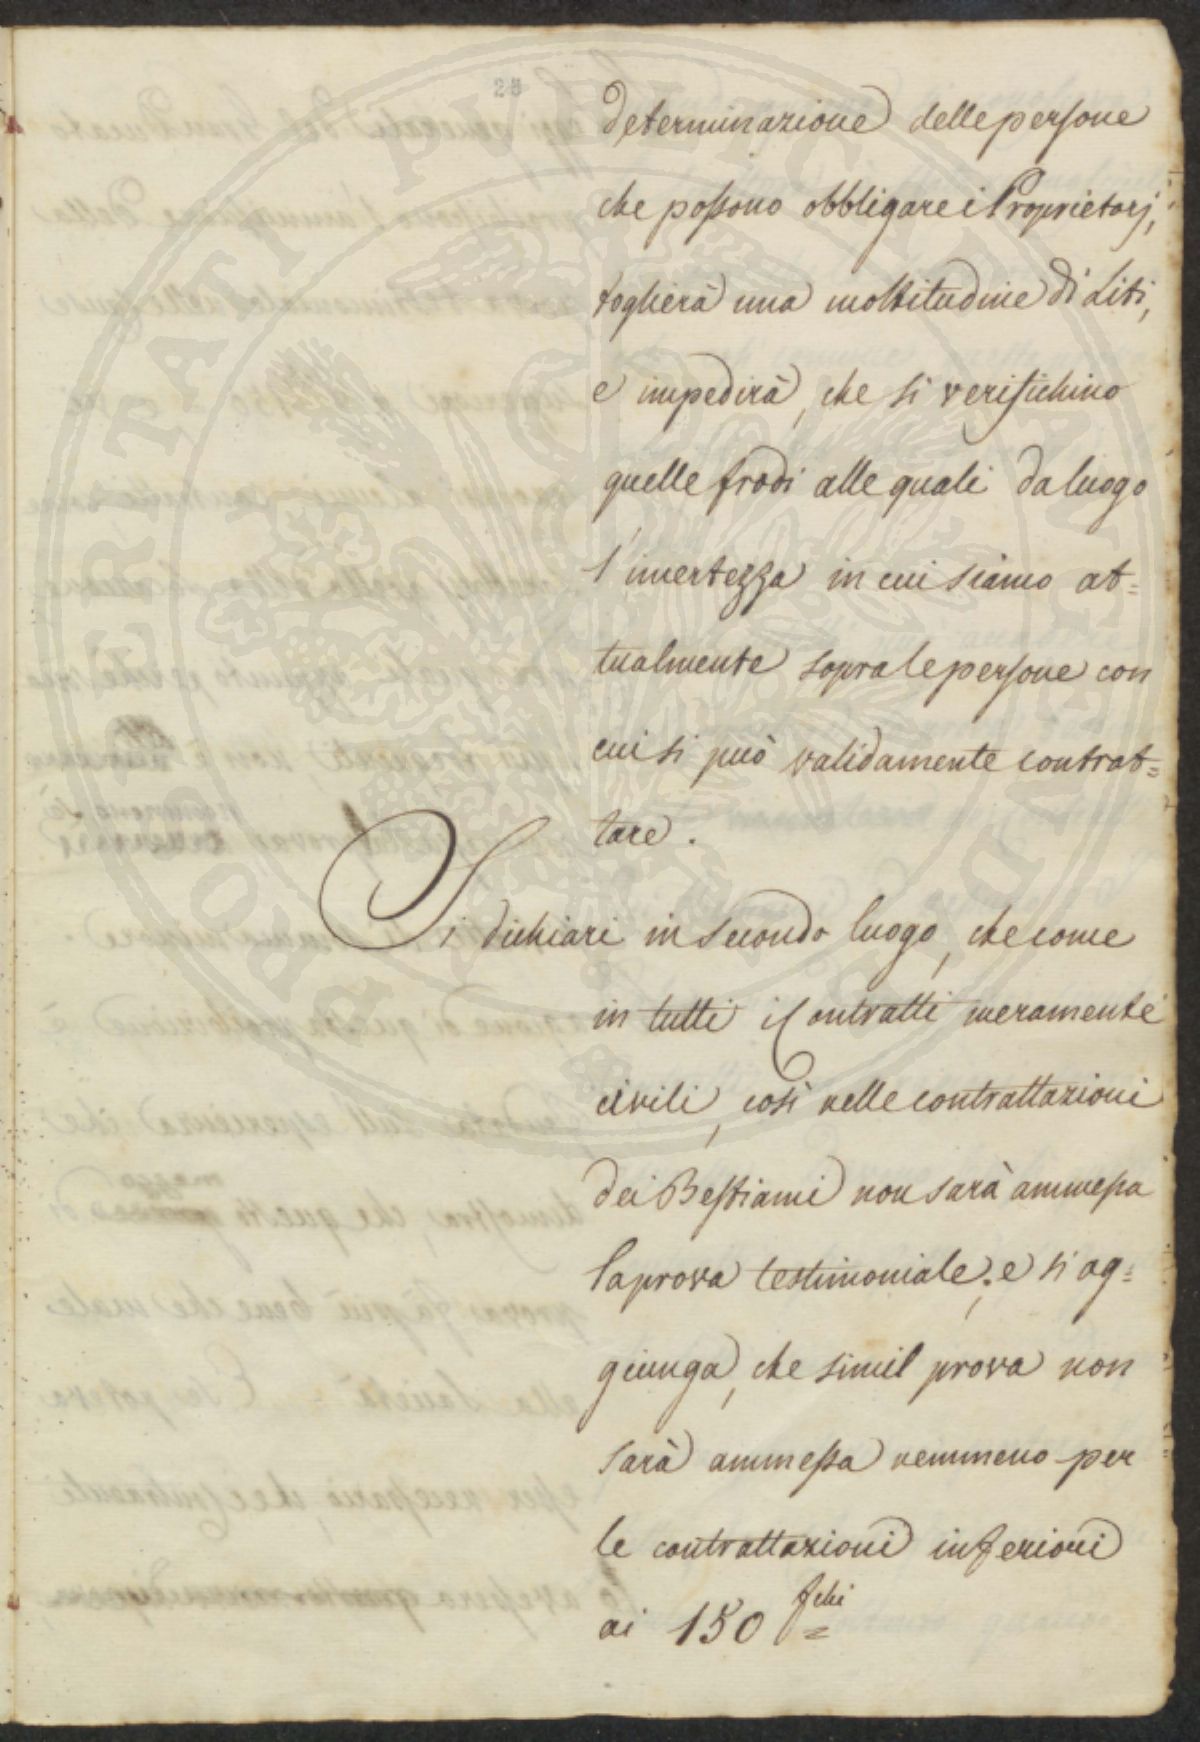 25
determinazione delle persone
che possono obbligare i Proprietarj,
toglierà una moltitudine di Liti,
e impedirà, che si verifichino
quelle frodi alle quali da luogo
l'incertezza in cui siamo at=
tualmente sopra le persone con
cui si può validamente contrat=
tare.
Si dichiari in secondo luogo, che come
in tutti i Contratti meramente
civili, così nelle contrattazioni
dei Bestiami non sarà ammessa
la prova testimoniale; e si ag=
giunga, che simil prova non
sarà ammessa nemmeno per
le contrattazioni inferiori
ai 150 fchi
PROSPERITATI PUBLICAE AUGENDAE